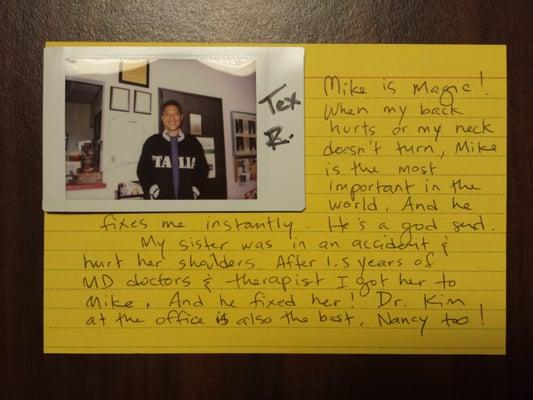 Tex
R.
ITALIA
Mike is Magic!
When my back
hurts or my neck
doesn't turn, Mike
is the most
important in the
world. And he
fixes me instantly. He's a god send.
My sister was in an accident &
hurt her shoulders. After 1.5 years of
MD doctors & therapist I got her to
Mike. And he fixed her! Dr. Kim
at the office is also the best. Nancy too!